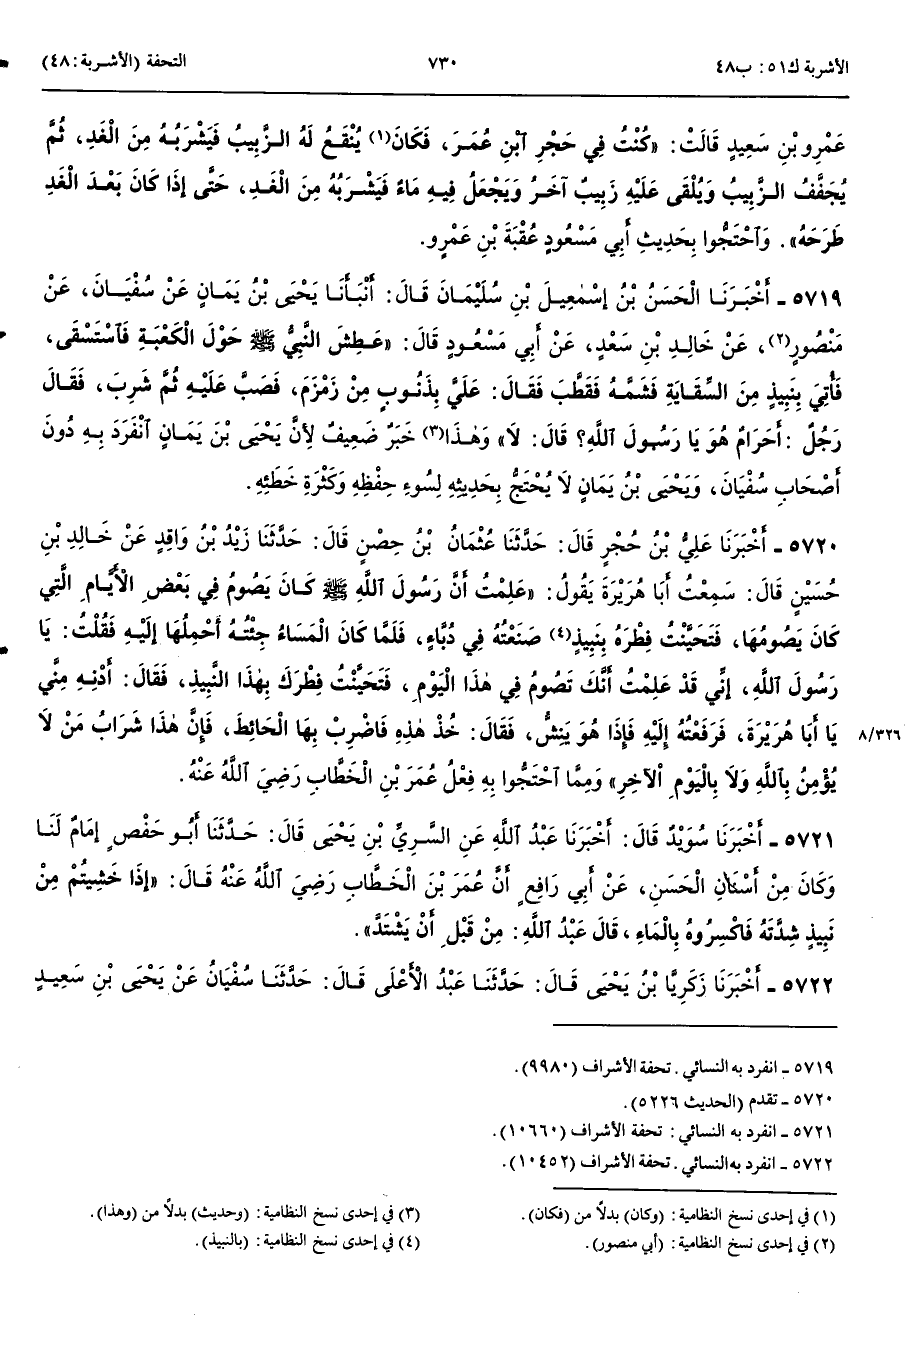 الأشربة ك٥١: ب٤٨
٧٣٠
التحفة (الأشربة: ٤٨)
عَمْرِو بْنِ سَعِيدٍ قَالَتْ: «كُنْتُ فِي حَجْرِ ٱبْنِ عُمَرَ، فَكَانَ(١) يُنْقَعُ لَهُ الـزَّبِيبُ فَيَشْرَبُـهُ مِنَ الْغَدِ، ثُمَّ
يُجَفَّفُ الـزَّبِيبُ وَيُلْقَى عَلَيْهِ زَبِيبٌ آخَـرُ وَيَجْعَلُ فِيـهِ مَاءً فَيَشْرَبُهُ مِنَ الْغَـدِ، حَتَّى إِذَا كَانَ بَعْـدَ الْغَدِ
طَرَحَهُ». وَٱحْتَجُّوا بِحَدِيثِ أَبِي مَسْعُودٍ عُقْبَةَ بْنِ عَمْرٍو.
٥٧١٩ ـ أَخْبَـرَنَـا الْحَسَنُ بْنُ إِسْمٰعِيـلَ بْنِ سُلَيْمَانَ قَـالَ: أَنْبَأَنَـا يَحْيَى بْنُ يَمَـانٍ عَنْ سُفْيَـانَ، عَنْ
مَنْصُورٍ(٢)، عَنْ خَالِـدِ بْنِ سَعْدٍ، عَنْ أَبِي مَسْعُـودٍ قَالَ: «عَـطِشَ النَّبِيُّ ﷺ حَوْلَ الْكَعْبَـةِ فَٱسْتَسْقَى،
فَأُتِيَ بِنَبِيذٍ مِنَ السِّقَايَةِ فَشَمَّـهُ فَقَطَّبَ فَقَـالَ: عَلَيَّ بِذَنُـوبٍ مِنْ زَمْزَمَ، فَصَبَّ عَلَيْـهِ ثُمَّ شَرِبَ، فَقَـالَ
رَجُلٌ: أَحَرَامٌ هُوَ يَا رَسُـولَ ٱللَّهِ؟ قَالَ: لَا» وَهٰـذَا(٣) خَبَرٌ ضَعِيفٌ لِأَنَّ يَحْيَى بْنَ يَمَـانٍ ٱنْفَرَدَ بِـهِ دُونَ
أَصْحَابِ سُفْيَانَ، وَيَحْيَى بْنُ يَمَانٍ لَا يُحْتَجُّ بِحَدِيثِهِ لِسُوءِ حِفْظِهِ وَكَثْرَةِ خَطَئِهِ.
٥٧٢٠ ـ أَخْبَرَنَا عَلِيُّ بْنُ حُجْرٍ قَالَ: حَدَّثَنَا عُثْمَانُ بْنُ حِصْنٍ قَالَ: حَدَّثَنَا زَيْدُ بْنُ وَاقِدٍ عَنْ خَـالِدِ بْنِ
حُسَيْنٍ قَالَ: سَمِعْتُ أَبَا هُرَيْرَةَ يَقُولُ: «عَلِمْتُ أَنَّ رَسُولَ ٱللَّهِ ﷺ كَـانَ يَصُومُ فِي بَعْضِ الْأَيَّـامِ الَّتِي
كَانَ يَصُومُهَا، فَتَحَيَّنْتُ فِطْرَهُ بِنَبِيذٍ(٤) صَنَعْتُهُ فِي دُبَّاءٍ، فَلَمَّا كَانَ الْمَسَاءُ جِئْتُـهُ أَحْمِلُهَا إِلَيْهِ فَقُلْتُ: يَا
رَسُولَ ٱللَّهِ، إِنِّي قَدْ عَلِمْتُ أَنَّكَ تَصُومُ فِي هٰذَا الْيَوْمِ، فَتَحَيَّنْتُ فِطْرَكَ بِهٰذَا النَّبِيذِ، فَقَالَ: أَدْنِـهِ مِنِّي
يَا أَبَا هُرَيْرَةَ، فَرَفَعْتُهُ إِلَيْهِ فَإِذَا هُوَ يَنِشُّ، فَقَالَ: خُذْ هٰذِهِ فَاضْرِبْ بِهَا الْحَائِطَ، فَإِنَّ هٰذَا شَرَابُ مَنْ لَا
٨/٣٢٦
يُؤْمِنُ بِٱللَّهِ وَلَا بِالْيَوْمِ الْآخِرِ» وَمِمَّا ٱحْتَجُّوا بِهِ فِعْلُ عُمَرَ بْنِ الْخَطَّابِ رَضِيَ ٱللَّهُ عَنْهُ.
٥٧٢١ ـ أَخْبَرَنَا سُوَيْدٌ قَالَ: أَخْبَرَنَا عَبْدُ ٱللَّهِ عَنِ السَّرِيِّ بْنِ يَحْيَى قَالَ: حَـدَّثَنَا أَبُـو حَفْصٍ إِمَامٌ لَنَـا
وَكَانَ مِنْ أَسْنَانِ الْحَسَنِ، عَنْ أَبِي رَافِعٍ أَنَّ عُمَرَ بْنَ الْخَـطَّابِ رَضِيَ ٱللَّهُ عَنْهُ قَـالَ: «إِذَا خَشِيتُمْ مِنْ
نَبِيذٍ شِدَّتَهُ فَٱكْسِرُوهُ بِالْمَاءِ، قَالَ عَبْدُ ٱللَّهِ: مِنْ قَبْلِ أَنْ يَشْتَدَّ».
٥٧٢٢ ـ أَخْبَرَنَا زَكَرِيَّا بْنُ يَحْيَى قَـالَ: حَدَّثَنَـا عَبْدُ الْأَعْلَى قَـالَ: حَدَّثَنَـا سُفْيَانُ عَنْ يَحْيَى بْنِ سَعِيـدٍ
٥٧١٩ ـ انفرد به النسائي. تحفة الأشراف (٩٩٨٠).
٥٧٢٠ ـ تقدم (الحديث ٥٢٢٦).
٥٧٢١ ـ انفرد به النسائي: تحفة الأشراف (١٠٦٦٠).
٥٧٢٢ ـ انفرد به النسائي. تحفة الأشراف (١٠٤٥٢).
(١) في إحدى نسخ النظامية: (وكان) بدلاً من (فكان).
(٢) في إحدى نسخ النظامية: (أبي منصور).
(٣) في إحدى نسخ النظامية: (وحديث) بدلاً من (وهذا).
(٤) في إحدى نسخ النظامية: (بالنبيذ).